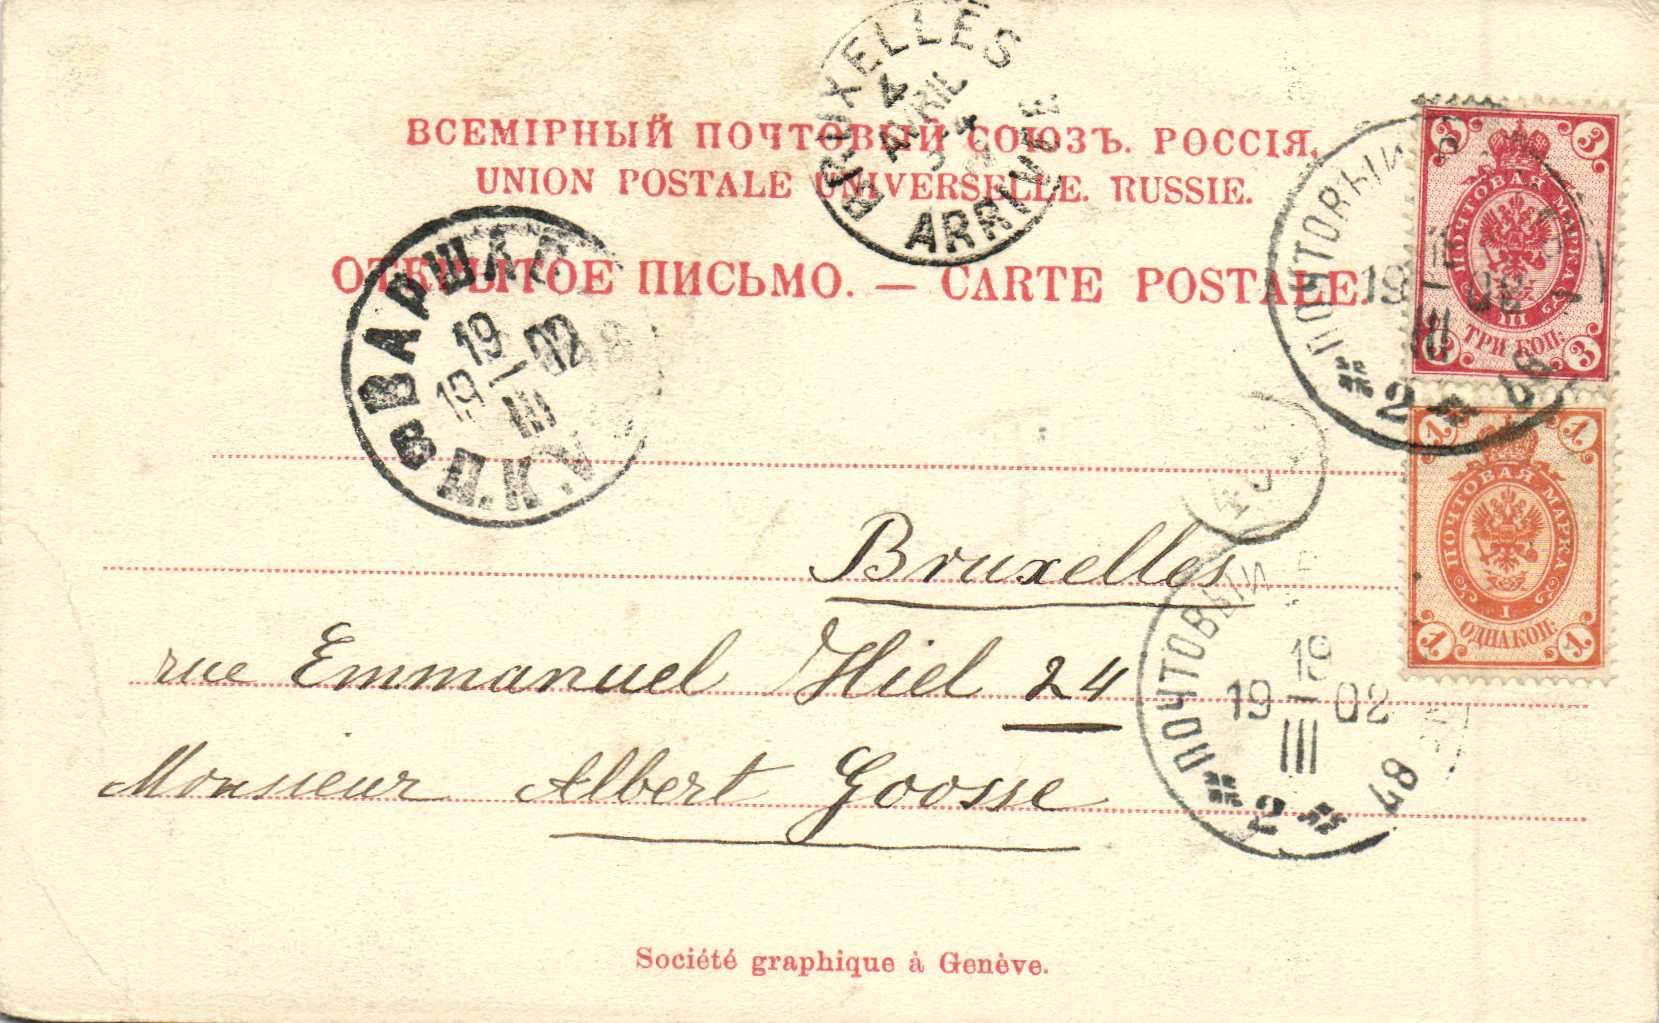 BRUXELLES
4
AVRIL
ARRIVÉE
ВСЕМІРНЫЙ ПОЧТОВЫЙ СОЮЗЪ. РОССІЯ.
UNION POSTALE UNIVERSELLE. RUSSIE.
ОТКРЫТОЕ ПИСЬМО. — CARTE POSTALE.
ВАРШАВ
19
19 — 02
III
3 3
ПОЧТОВАЯ МАРКА
III
ТРИ КОП:
3 3
ПОЧТОВЫЙ
19 — 02
III
2
48
1 1
ПОЧТОВАЯ МАРКА
I.
ОДНА КОП:
1 1
Bruxelles
rue Emmanuel Hiel 24
Monsieur Albert Goosse
ПОЧТОВЫЙ
19
19 — 02
III
2
48
Société graphique à Genève.